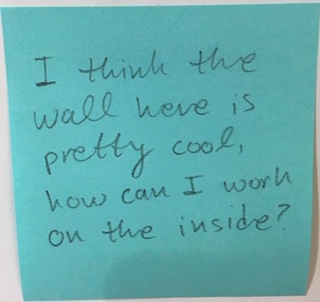 I think the
wall here is
pretty cool,
how can I work
on the inside?